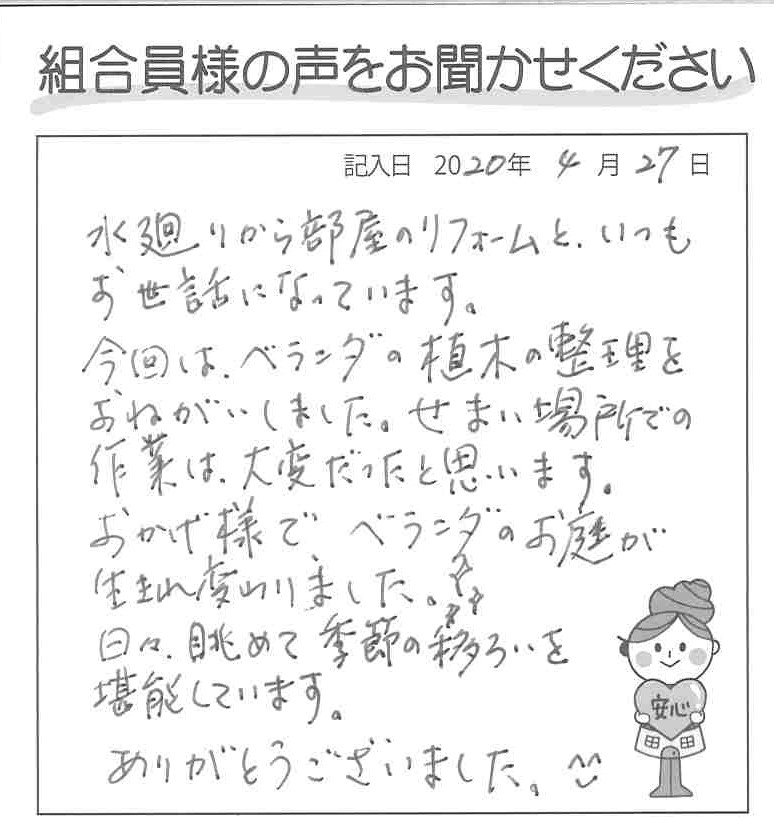 組合員様の声をお聞かせください
記入日 2020年 4月27日
水廻りから部屋のリフォームと、いつも
お世話になっています。
今回は、ベランダの植木の整理を
おねがいしました。せまい場所での
作業は、大変だったと思います。
おかげ様で、ベランダのお庭が
生まれ変わりました。
日々、眺めて季節の移ろいを
堪能しています。
ありがとうございました。^^
安心